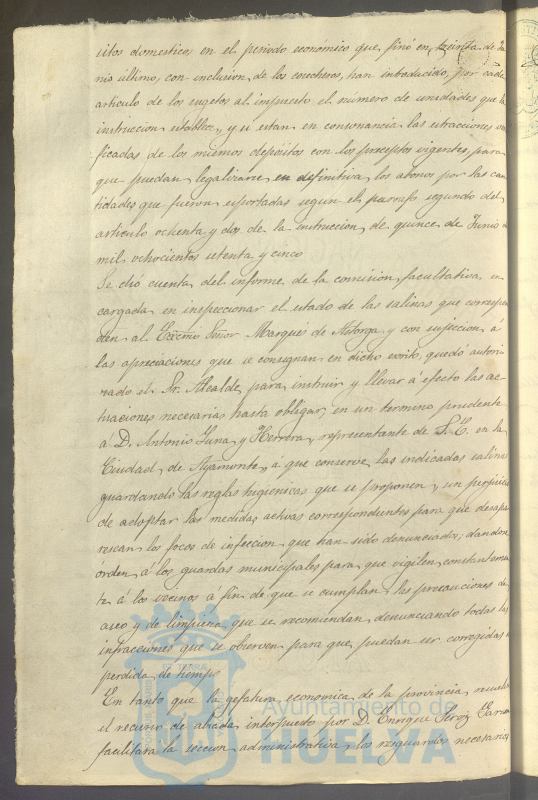 sitos domesticos en el periodo económico que finó en treinta de Ju
nio último, con inclusion de los cosecheros, han introducido por cada
articulo de los sugetos al impuesto el número de unidades que la
instruccion establece, y si estan en consonancia las estracciones veri
ficadas de los mismos depósitos con los preceptos vigentes, para
que puedan legalizarse en definitiva los abonos por las can
tidades que fueron esportadas segun el párrafo segundo del
articulo ochenta y dos de la instruccion de quince de Junio de
mil ochocientos setenta y cinco
Se dió cuenta del informe de la comision facultativa en
cargada en inspeccionar el estado de las salinas que correspon
den al Excmo Señor Marqués de Astorga y con sujeccion á
las apreciaciones que se consignan en dicho escrito, quedó autori
zado el Sr. Alcalde para instruir y llevar á efecto las ac-
tuaciones necesarias hasta obligar en un termino prudente
á D. Antonio y Herrera, representante de S. E. en la
Ciudad de Ayamonte, á que conserve las indicadas salinas
guardando las reglas higienicas que se proponen, sin perjuicio
de adoptar las medidas activas correspondientes para que desapa
rescan los focos de infeccion que han sido denunciados; dandose
órden á los guardas municipales para que vigilen constantemen
te á los vecinos a fin de que se cumplan las precauciones de
aseo y de limpieza que se recomiendan, denunciando todas las
infracciones que se observen para que puedan ser corregidas sin
perdida de tiempo
En tanto que la gefatura economica de la provincia resuelve
el recurso de alzada interpuesto por D. Enrique
facilitara la seccion administrativa los resguardos necesarios
Ayuntamiento de
HUELVA